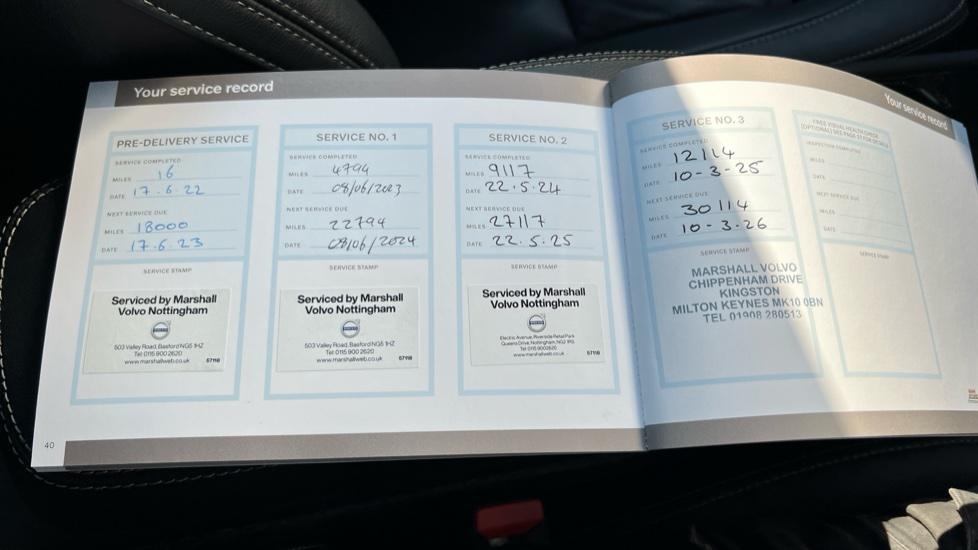 Your service record
PRE-DELIVERY SERVICE
SERVICE COMPLETED
MILES 16
DATE 17.6.22
NEXT SERVICE DUE
MILES 18000
DATE 17.6.23
SERVICE STAMP
Serviced by Marshall
Volvo Nottingham
VOLVO
503 Valley Road, Basford NG5 1HZ
Tel: 0115 900 2620
www.marshallweb.co.uk
57118
SERVICE NO. 1
SERVICE COMPLETED
MILES 4794
DATE 08/06/2023
NEXT SERVICE DUE
MILES 22794
DATE 08/06/2024
SERVICE STAMP
Serviced by Marshall
Volvo Nottingham
VOLVO
503 Valley Road, Basford NG5 1HZ
Tel: 0115 900 2620
www.marshallweb.co.uk
57118
SERVICE NO. 2
SERVICE COMPLETED
MILES 9117
DATE 22.5.24
NEXT SERVICE DUE
MILES 27117
DATE 22.5.25
SERVICE STAMP
Serviced by Marshall
Volvo Nottingham
VOLVO
Electric Avenue, Riverside Retail Park
Queens Drive, Nottingham, NG2
Tel: 0115 9002620
www.marshallweb.co.uk
57118
40
Your service record
SERVICE NO. 3
SERVICE COMPLETED
MILES 12114
DATE 10-3-25
NEXT SERVICE DUE
MILES 30114
DATE 10-3-26
SERVICE STAMP
MARSHALL VOLVO
CHIPPENHAM DRIVE
KINGSTON
MILTON KEYNES MK10 0BN
TEL 01908 280513
FREE VISUAL HEALTH CHECK
(OPTIONAL) SEE PAGE
INSPECTION COMPLETED
MILES
DATE
NEXT SERVICE DUE
MILES
DATE
SERVICE STAMP